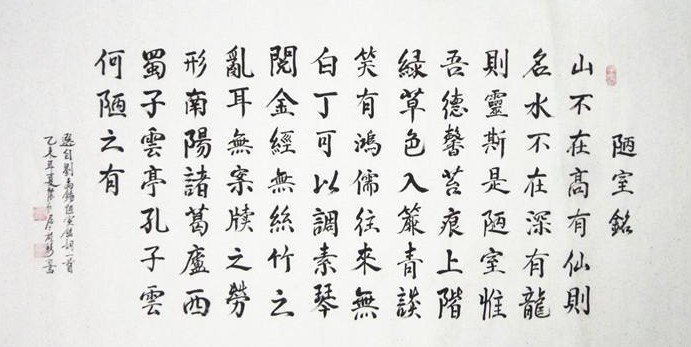 陋室銘
山不在高有仙則
名水不在深有龍
則靈斯是陋室惟
吾德馨苔痕上階
綠草色入簾青談
笑有鴻儒往來無
白丁可以調素琴
閱金經無絲竹之
亂耳無案牘之勞
形南陽諸葛廬西
蜀子雲亭孔子雲
何陋之有
選自劉禹錫陋室銘詞一首
乙未年夏